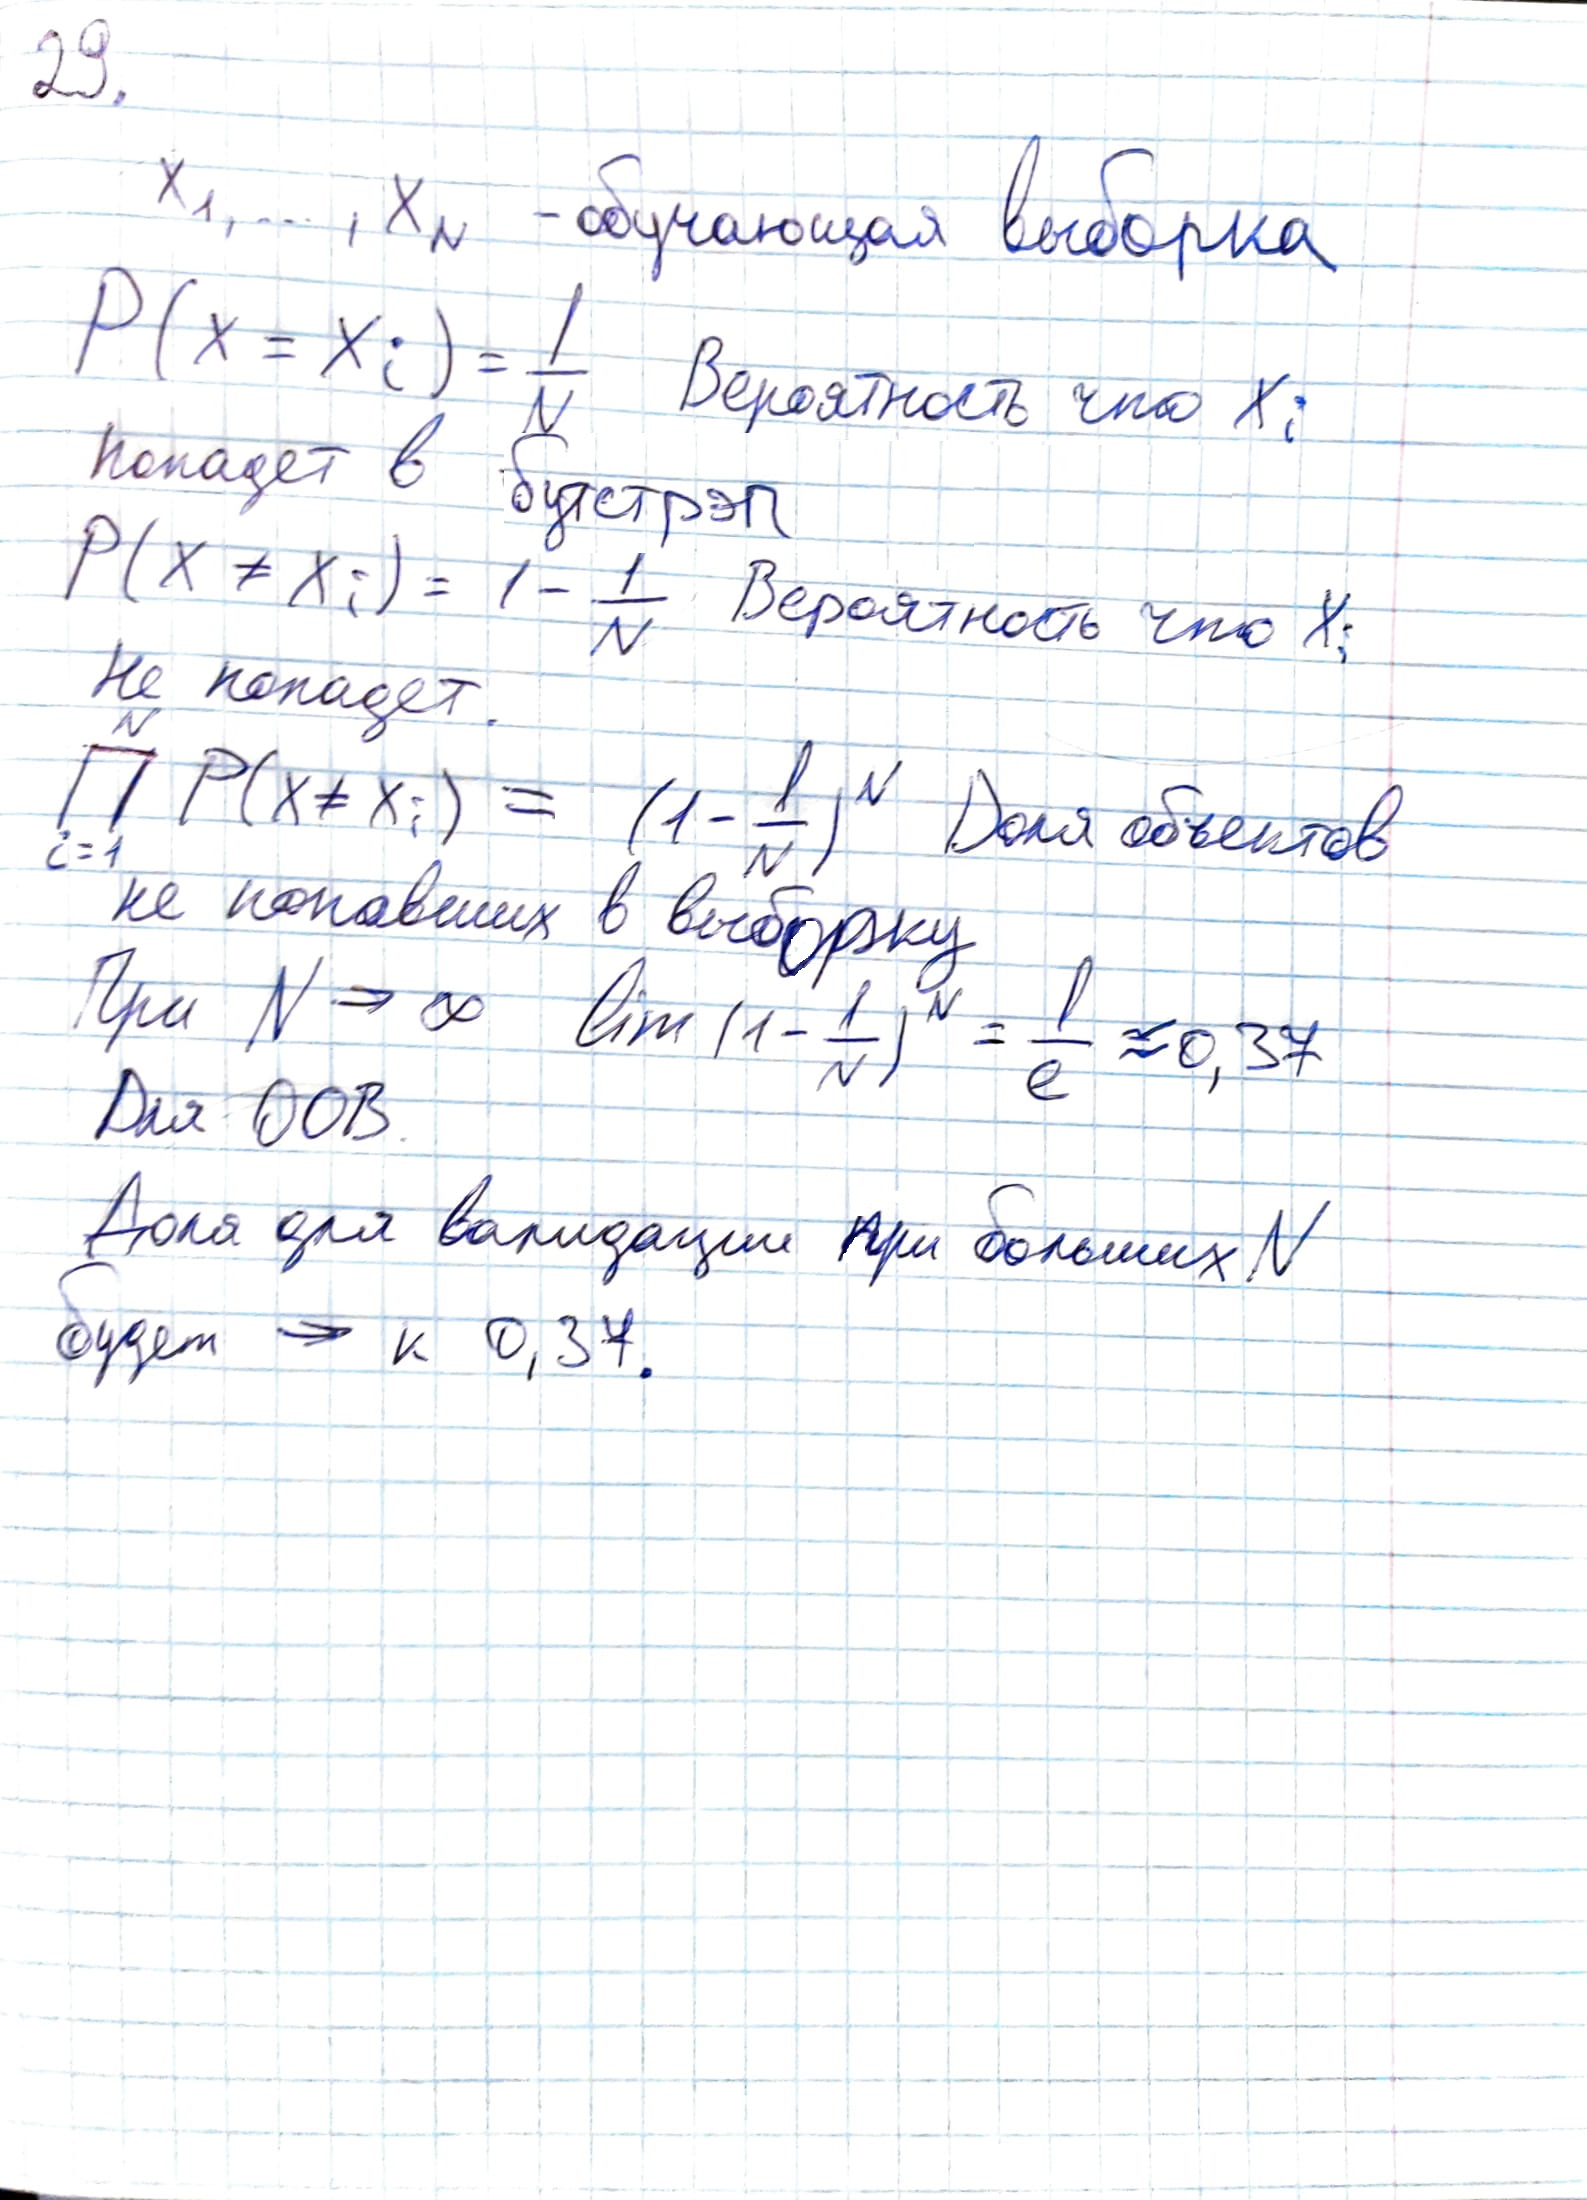 29.
x₁, ..., x_N - обучающая выборка
P(x = x_i) = 1/N Вероятность что x_i
попадет в бутстрэп
P(x ≠ x_i) = 1 - 1/N Вероятность что x_i
не попадет.
∏_{i=1}^{N} P(x ≠ x_i) = (1 - 1/N)^N Доля объектов
не попавших в выборку
При N → ∞ lim (1 - 1/N)^N = 1/e ≈ 0,37
Для OOB.
Доля для валидации при больших N
будет → к 0,37.